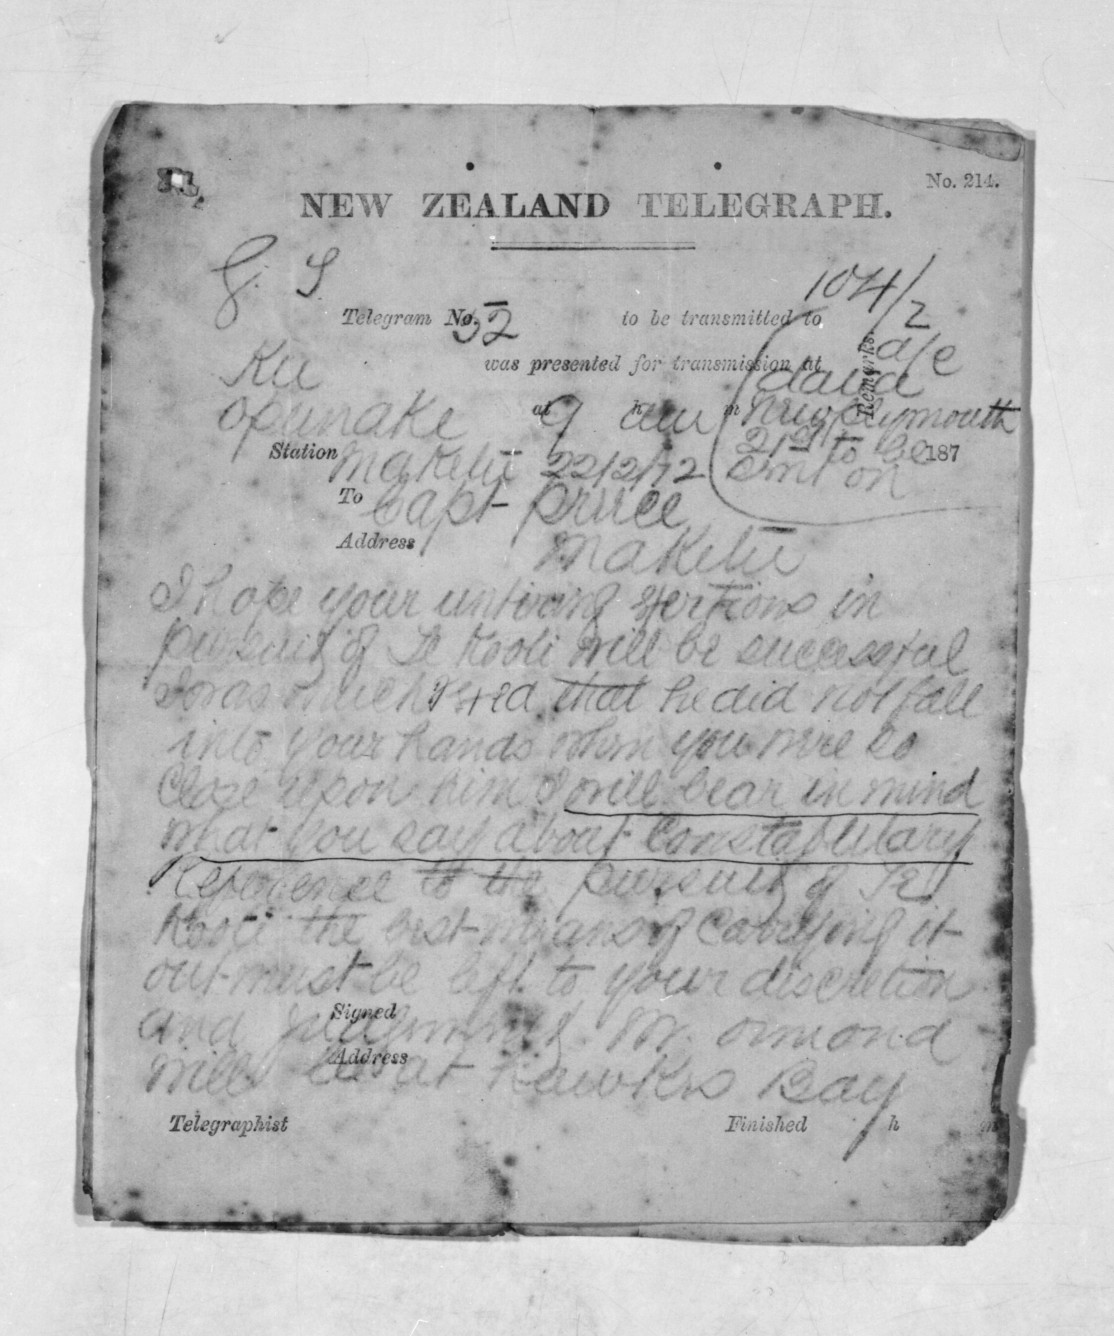 No. 214.
NEW ZEALAND TELEGRAPH.
G. S.
104/2
Telegram No. 52 to be transmitted to
Remarks.
a/e
was presented for transmission at
dated
Opunake at 9 h am m New plymouth
21st to be
Station Maketu 22/2/72 187
sent on
To Capt Price
Address Maketu
I hope your untiring exertions in
pursuit of Te Kooti will be successful
I was much vexed that he did not fall
into your hands when you were so
close upon him I will bear in mind
what you say about Constabulary
Reference to the pursuit of Te
Kooti the best means of Carrying it
out must be left to your discretion
Signed
and judgment Mr. Ormond
Address
will be at Hawkes Bay
Telegraphist Finished h m